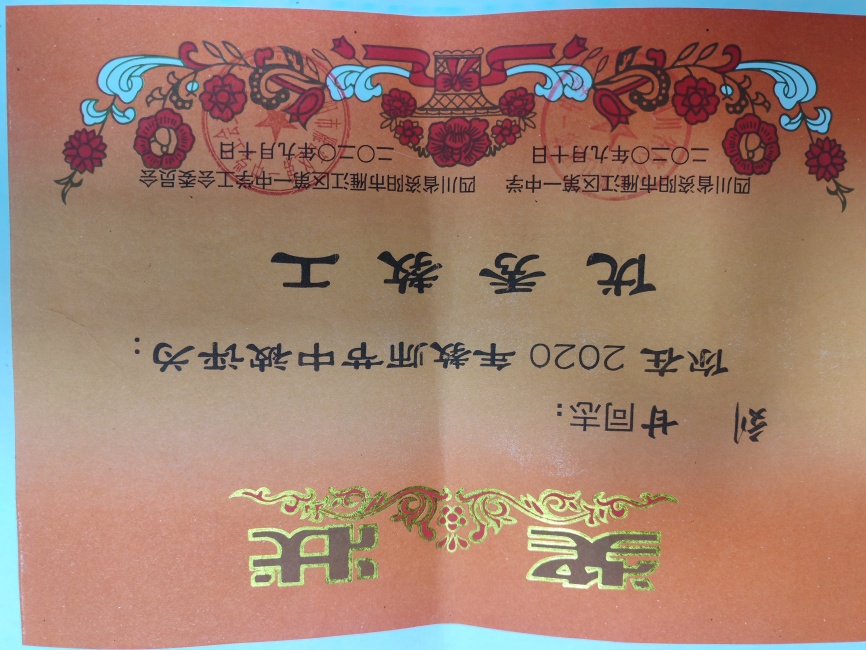 奖状
刘 甘同志：
你在 2020 年教师节中被评为：
优秀教工
四川省资阳市雁江区第一中学 四川省资阳市雁江区第一中学工会委员会
二〇二〇年九月十日 二〇二〇年九月十日